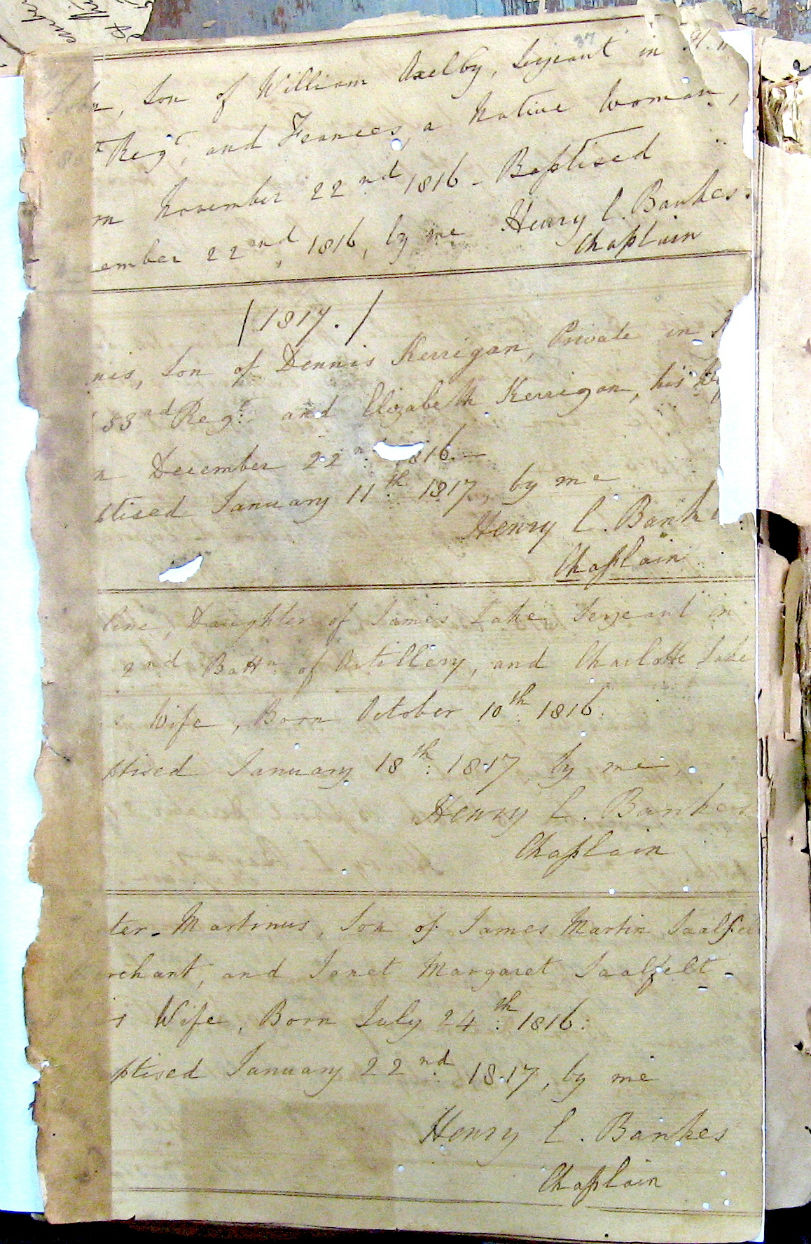 37
John, Son of William Axelby, Serjeant in H. M
Regt. and Frances, a Native Woman,
rn November 22nd 1816 - Baptised
ember 22nd, 1816, by me Henry C. Bankes.
Chaplain
/ 1817. /
nis, Son of Dennis Kerrigan, Private in
53rd Regt. and Elizabeth Kerrigan, his
n December 22n 1816.-
ptised January 11th 1817, by me
Henry C. Banke
Chaplain
line, Daughter of James Lake Serjeant in
2nd Battn of Artillery, and Charlotte Lake
s Wife, Born October 10th 1816.
ptised January 18th. 1817, by me,
Henry C. Bankes
Chaplain
ter-Martinus, Son of James Martin Saalfel
erchant, and Janet Margaret Saalfelt
is Wife, Born July 24th: 1816:
ptised January 22nd. 1817, by me
Henry C. Bankes
Chaplain